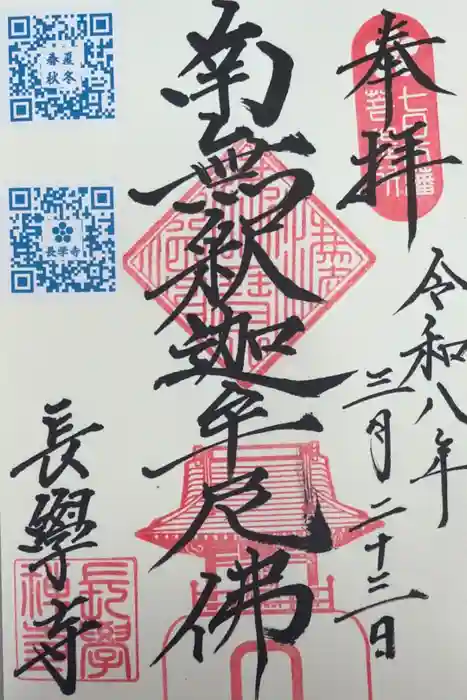 奉拝
令和八年
三月二十三日
南無釈迦牟尼佛
長學寺
春夏
秋冬
長学寺